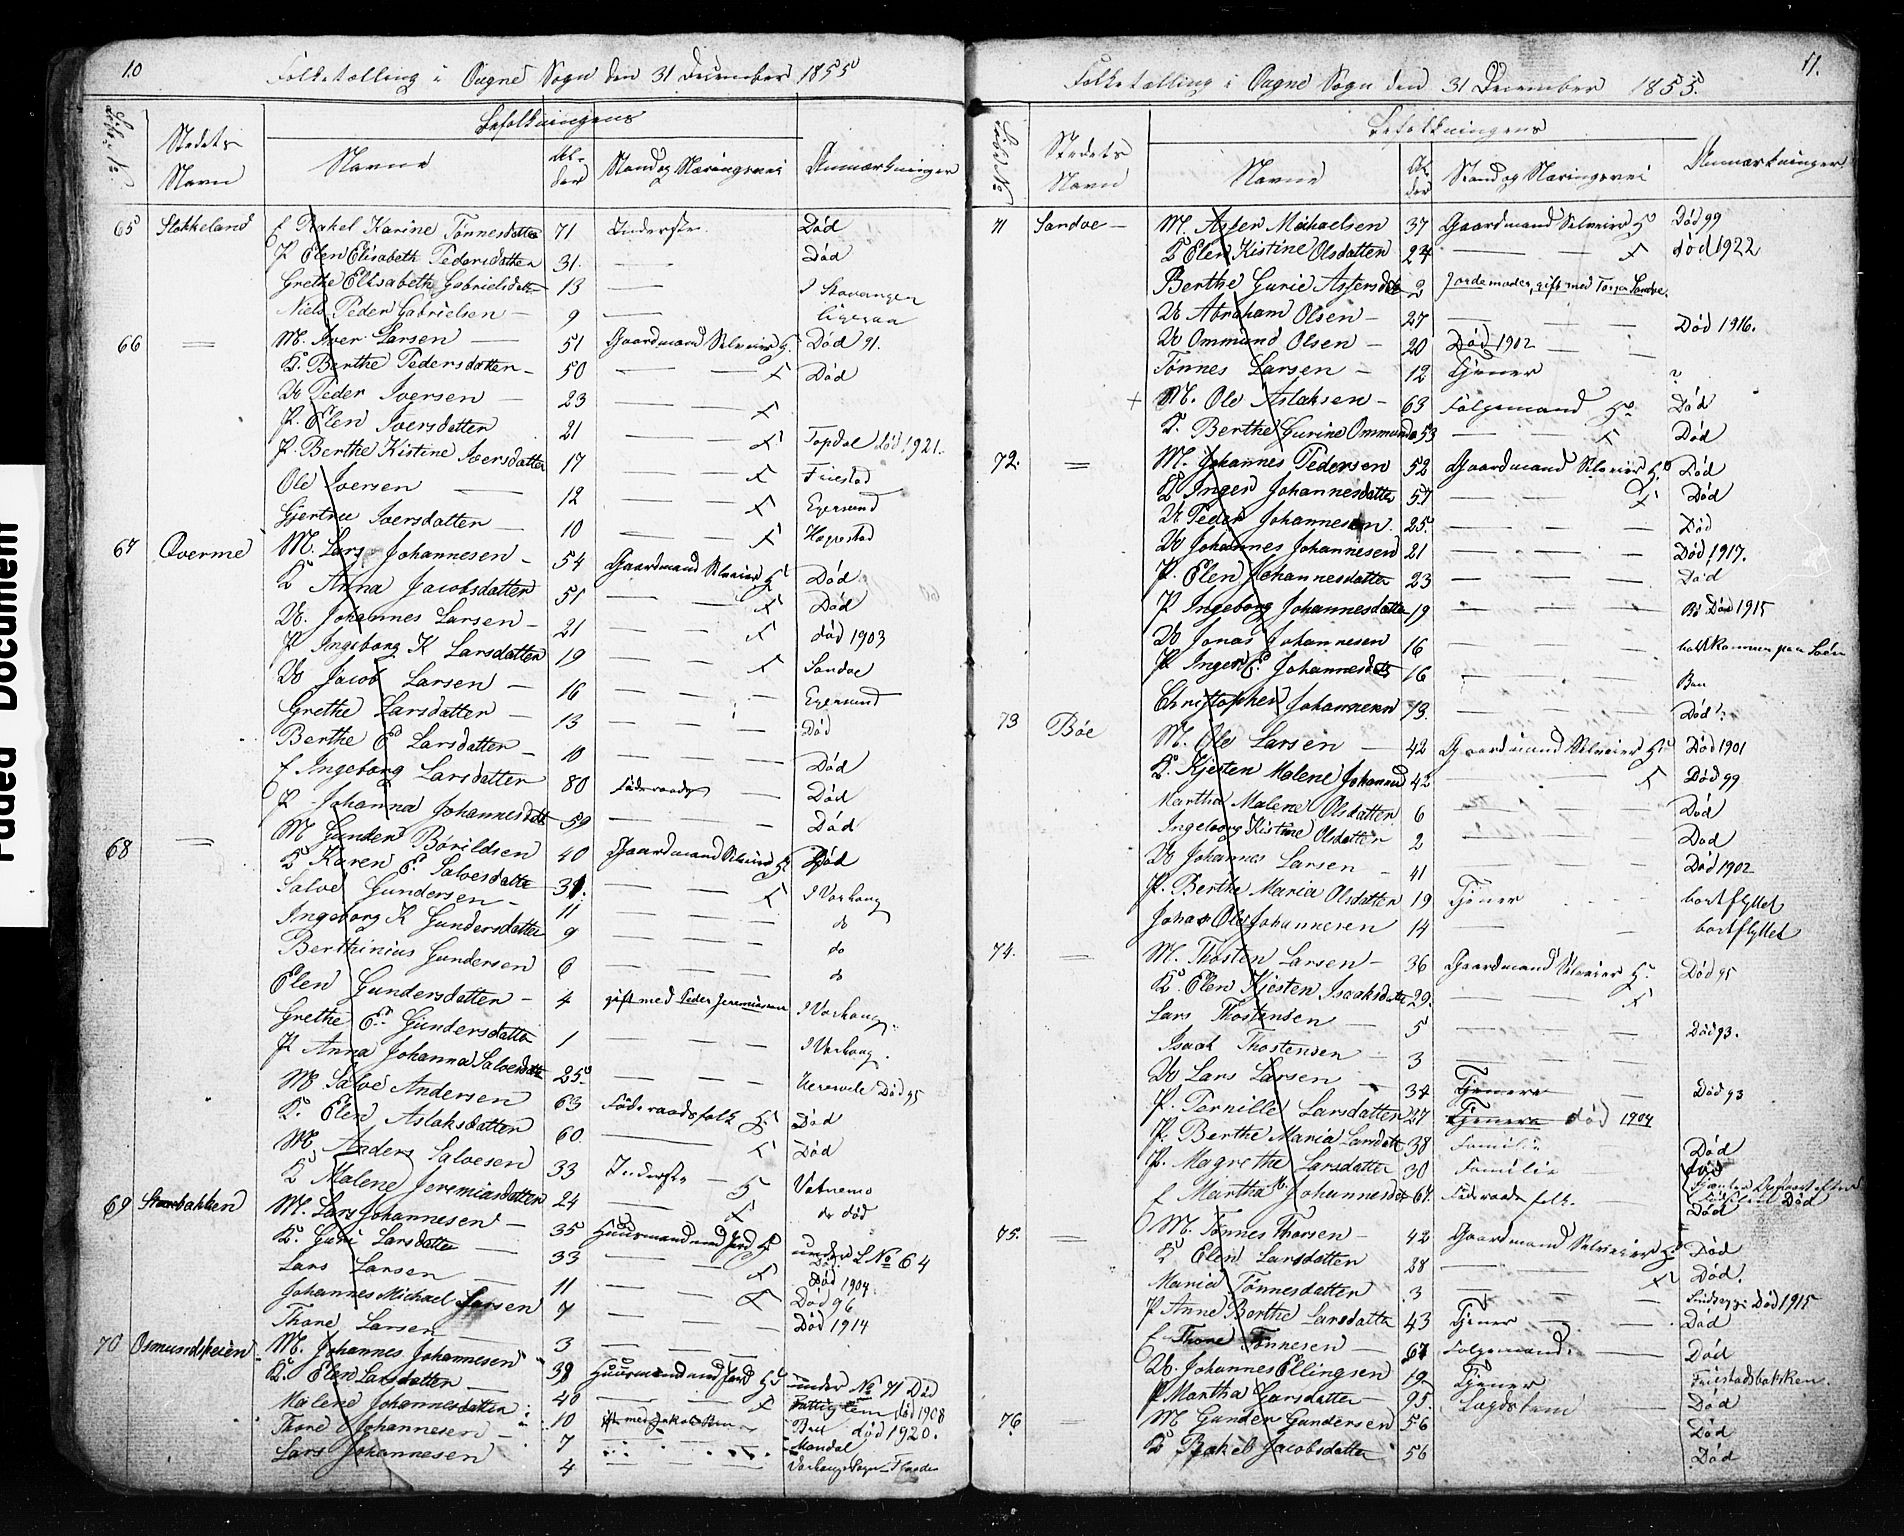 10
Folketælling i Ougne Sogn den 31 December 1855
Stedets Navn
Befolkningens
Navne
Al-der
Stand og Næringsvei
Anmærkninger
65 Stokkeland f Rakel Karine Tønnesdatter 71 Inderste Død
P Elen Elisabeth Pedersdatter 31 — — Død
Grethe Elisabeth Gabrielsdatt 13 — I Stavanger
Niels Peder Gabrielsen — 9 — ligesaa
66 — M. Iver Larsen — 51 Gaardmand Selveier G. Død 91.
K. Berthe Pedersdatter — 50 — — Død
U Peder Iversen — 23 — —
P. Elen Iversdatter 21 — — Topdal død 1921.
P. Berthe Kistine Iversdatter 17 — — Friestad
Ole Iversen — 12 — — Egersund
Gjertrue Iversdatter — 10 — — Høgestad
67 Qverme M. Lars Johannesen — 54 Gaardmand Selveier G Død
K Anna Jacobsdatter 51 — — Død
U. Johannes Larsen — 21 — — død 1903
P Ingeborg K Larsdatter 19 — — Sandve
U Jacob Larsen — 16 — — Egersund
Grethe Larsdatter — 13 — — Død
Berthe E Larsdatter — 10 — — Død
f Ingeborg Larsdatter 80 Føderaads Død
P Johanna Johannesdatt 59 — — Død
68 — M Gunder Børildsen 40 Gaardmand Selveier G. Død
K Karen E. Salvesdatte 38. — — I Varhaug
Salve Gundersen — 11 — — do
Ingeborg K Gundersdatter 9 — — do
Berthinius Gundersen 6 — — do
Elen Gundersdatter — 4 gift med Peder Jeremiassen I Varhaug
Grethe E. Gundersdatter 1 — — I Varhaug.
P Anna Johanna Salvesdatt 25 — — Død 95
M Salve Andersen 63 Føderaadsfolk G Død
K. Elen Aslaksdatter 60 — — Død
M Anders Salvesen 33 Inderste — G Vatnemo
K Malene Jeremiasdatter 24 — do død
69 Steenbakken M. Lars Johannesen — 35 Huusmand med Jord G under L No 64
K. Guri Larsdatter — 33 — — Død
Lars Larsen — 11 — — Død 1904
Johannes Michael Larsen 7 — — Død 96
Thore Larsen — 3 — — Død 1914
70 Osmundskeien M. Johannes Johannesen 38 Huusmand med Jord G under No 71 Død
K. Elen Larsdatter — 40 — — død 1908
Malene Johannesdatter 10 død 1920.
Thore Johannesen — 7 Mandal
Lars Johannesen 4
11.
Folketælling i Ougne Sogn den 31 December 1855.
Løbe No
Stedets Navn
Befolkningens
Navne
Al-der
Stand og Næringsvei
Anmærkninger
71 Sandve — M. Asser Michaelsen 37 Gaardmand Selveier G Død 99
K Elen Kistine Olsdatter 24 — — død 1922
Berthe Gurie Assersdat 2 Jordemoder, gift med Sandve.
U Abraham Olsen — 27 — — Død 1916.
U Ommund Olsen — 20 Død 1902
Tønnes Larsen — 12 Tjener ?
+ M. Ole Aslaksen — 63 Følgemand G. Død
K. Berthe Gurine Ommunds 53 — — Død
72. — M. Johannes Pedersen 52 Gaardmand Selveier G. Død
K Inger Johannesdatter 57 — — Død
U Peder Johannesen. 25. — — Død
U Johannes Johannesen 21 — — Død 1917.
P. Elen Johannesdatter 23 — — Død
P Ingeborg Johannesdatte 19 — — Bø Død 1915
U Jonas Johannesen 16 — — bortkommen paa Søen
P. Inger E. Johannesdatt 16 — —
Christopher Johannesen 13. — — Død?
73 Bøe M. Ole Larsen — 42 Gaardmand Selveier G. Død 1901
K. Kjesten Malene Johannesd 42 — — Død 99
Martha Malene Olsdatter 6 — — Død
Ingeborg Kistine Olsdatter 2 — — Død
U Johannes Larsen — 41 — — Død 1902
P. Berthe Maria Olsdatter 19 Tjener bortflyttet
Johan Ole Johannesen 14 — bortflyttet
74. — M. Thosten Larsen — 36 Gaardmand Selveier G. Død 95
K. Elen Kjesten Isaaksdatt 29. — —
Lars Thostensen — 5 — — Død 93.
Isaak Thostensen — 3 — —
U Lars Larsen — 34 Tjener Død 93
P. Pernille Larsdatter 27 Tjener død 1904
P. Berthe Maria Larsdatt 38 Familie Død
P. Magrethe Larsdatter 30 Familie Død
f Martha Johannesdat 67. Føderaads folk. Død
75. — M. Tønnes Thorsen — 42 Gaardmand Selveier G Død
K Elen Larsdatter 28 — — Død.
Maria Tønnesdatter 3 — — Død 1915
P Anne Berthe Larsdatter 43 Tjener — Død
f Thore Tønnesen — 67 Følgemand. — Død
U. Johannes Ellingsen 19 Tjener Friestadbakken.
P Martha Larsdatter — 95. Lægdslem — Død
76. M Gunder Gundersen 56 Død
K Rakel Jacobsdatter 56 Død
Faded Document